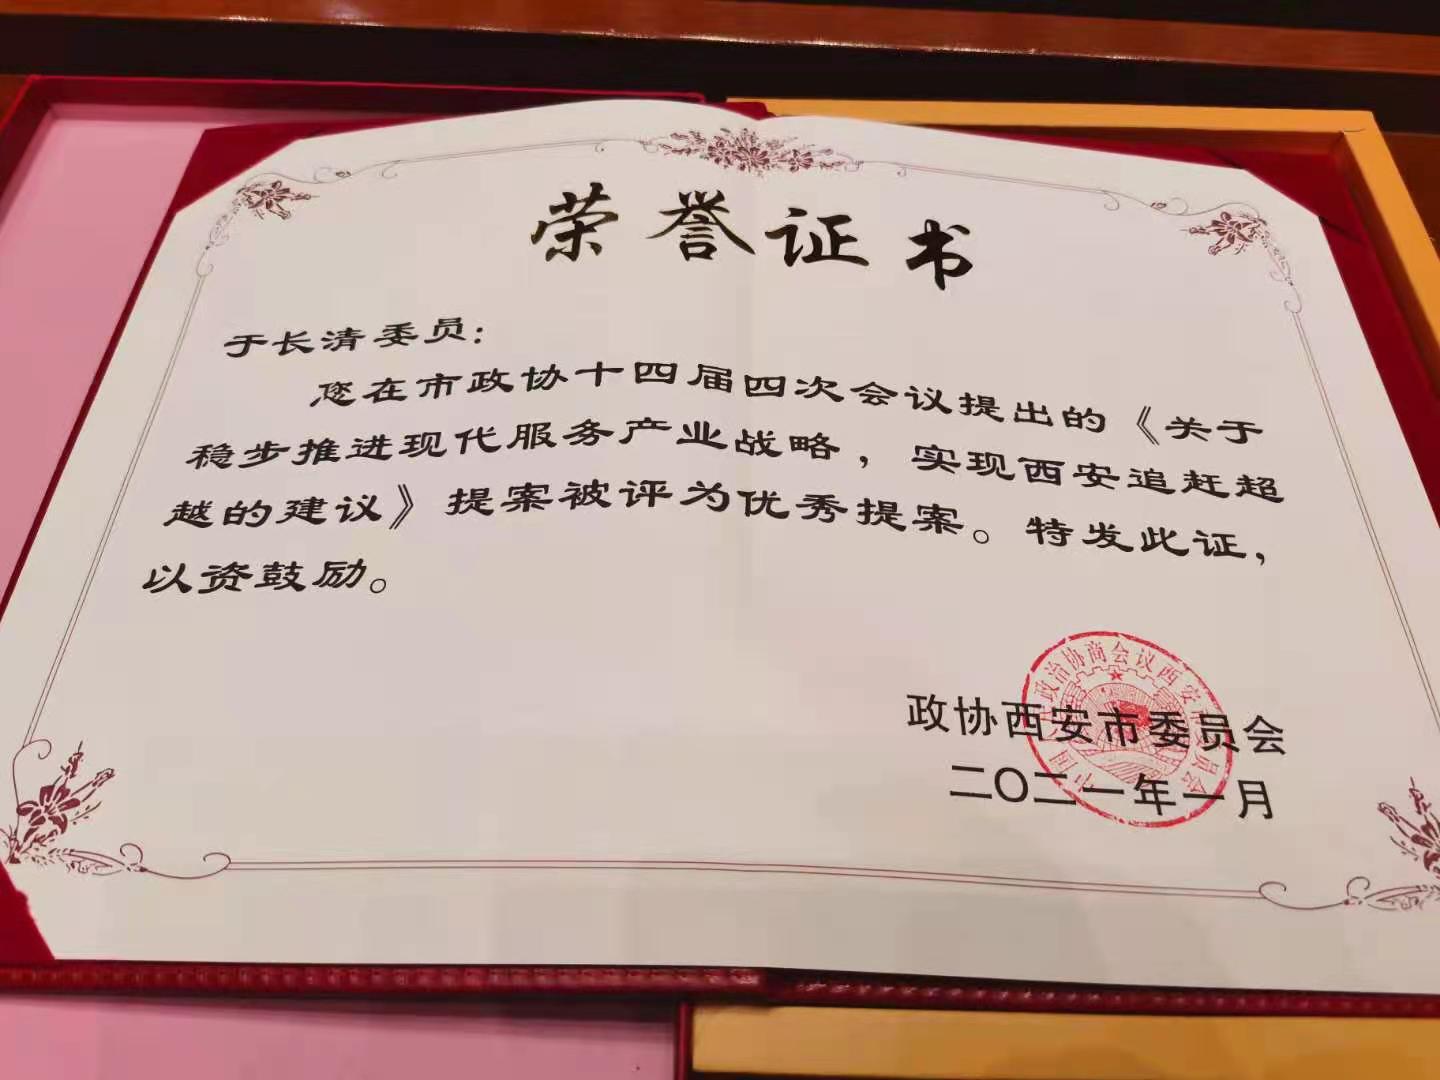 荣誉证书
于长清委员：
您在市政协十四届四次会议提出的《关于
稳步推进现代服务产业战略，实现西安追赶超
越的建议》提案被评为优秀提案。特发此证，
以资鼓励。
政治协商会议西安
政协西安市委员会
二〇二一年一月